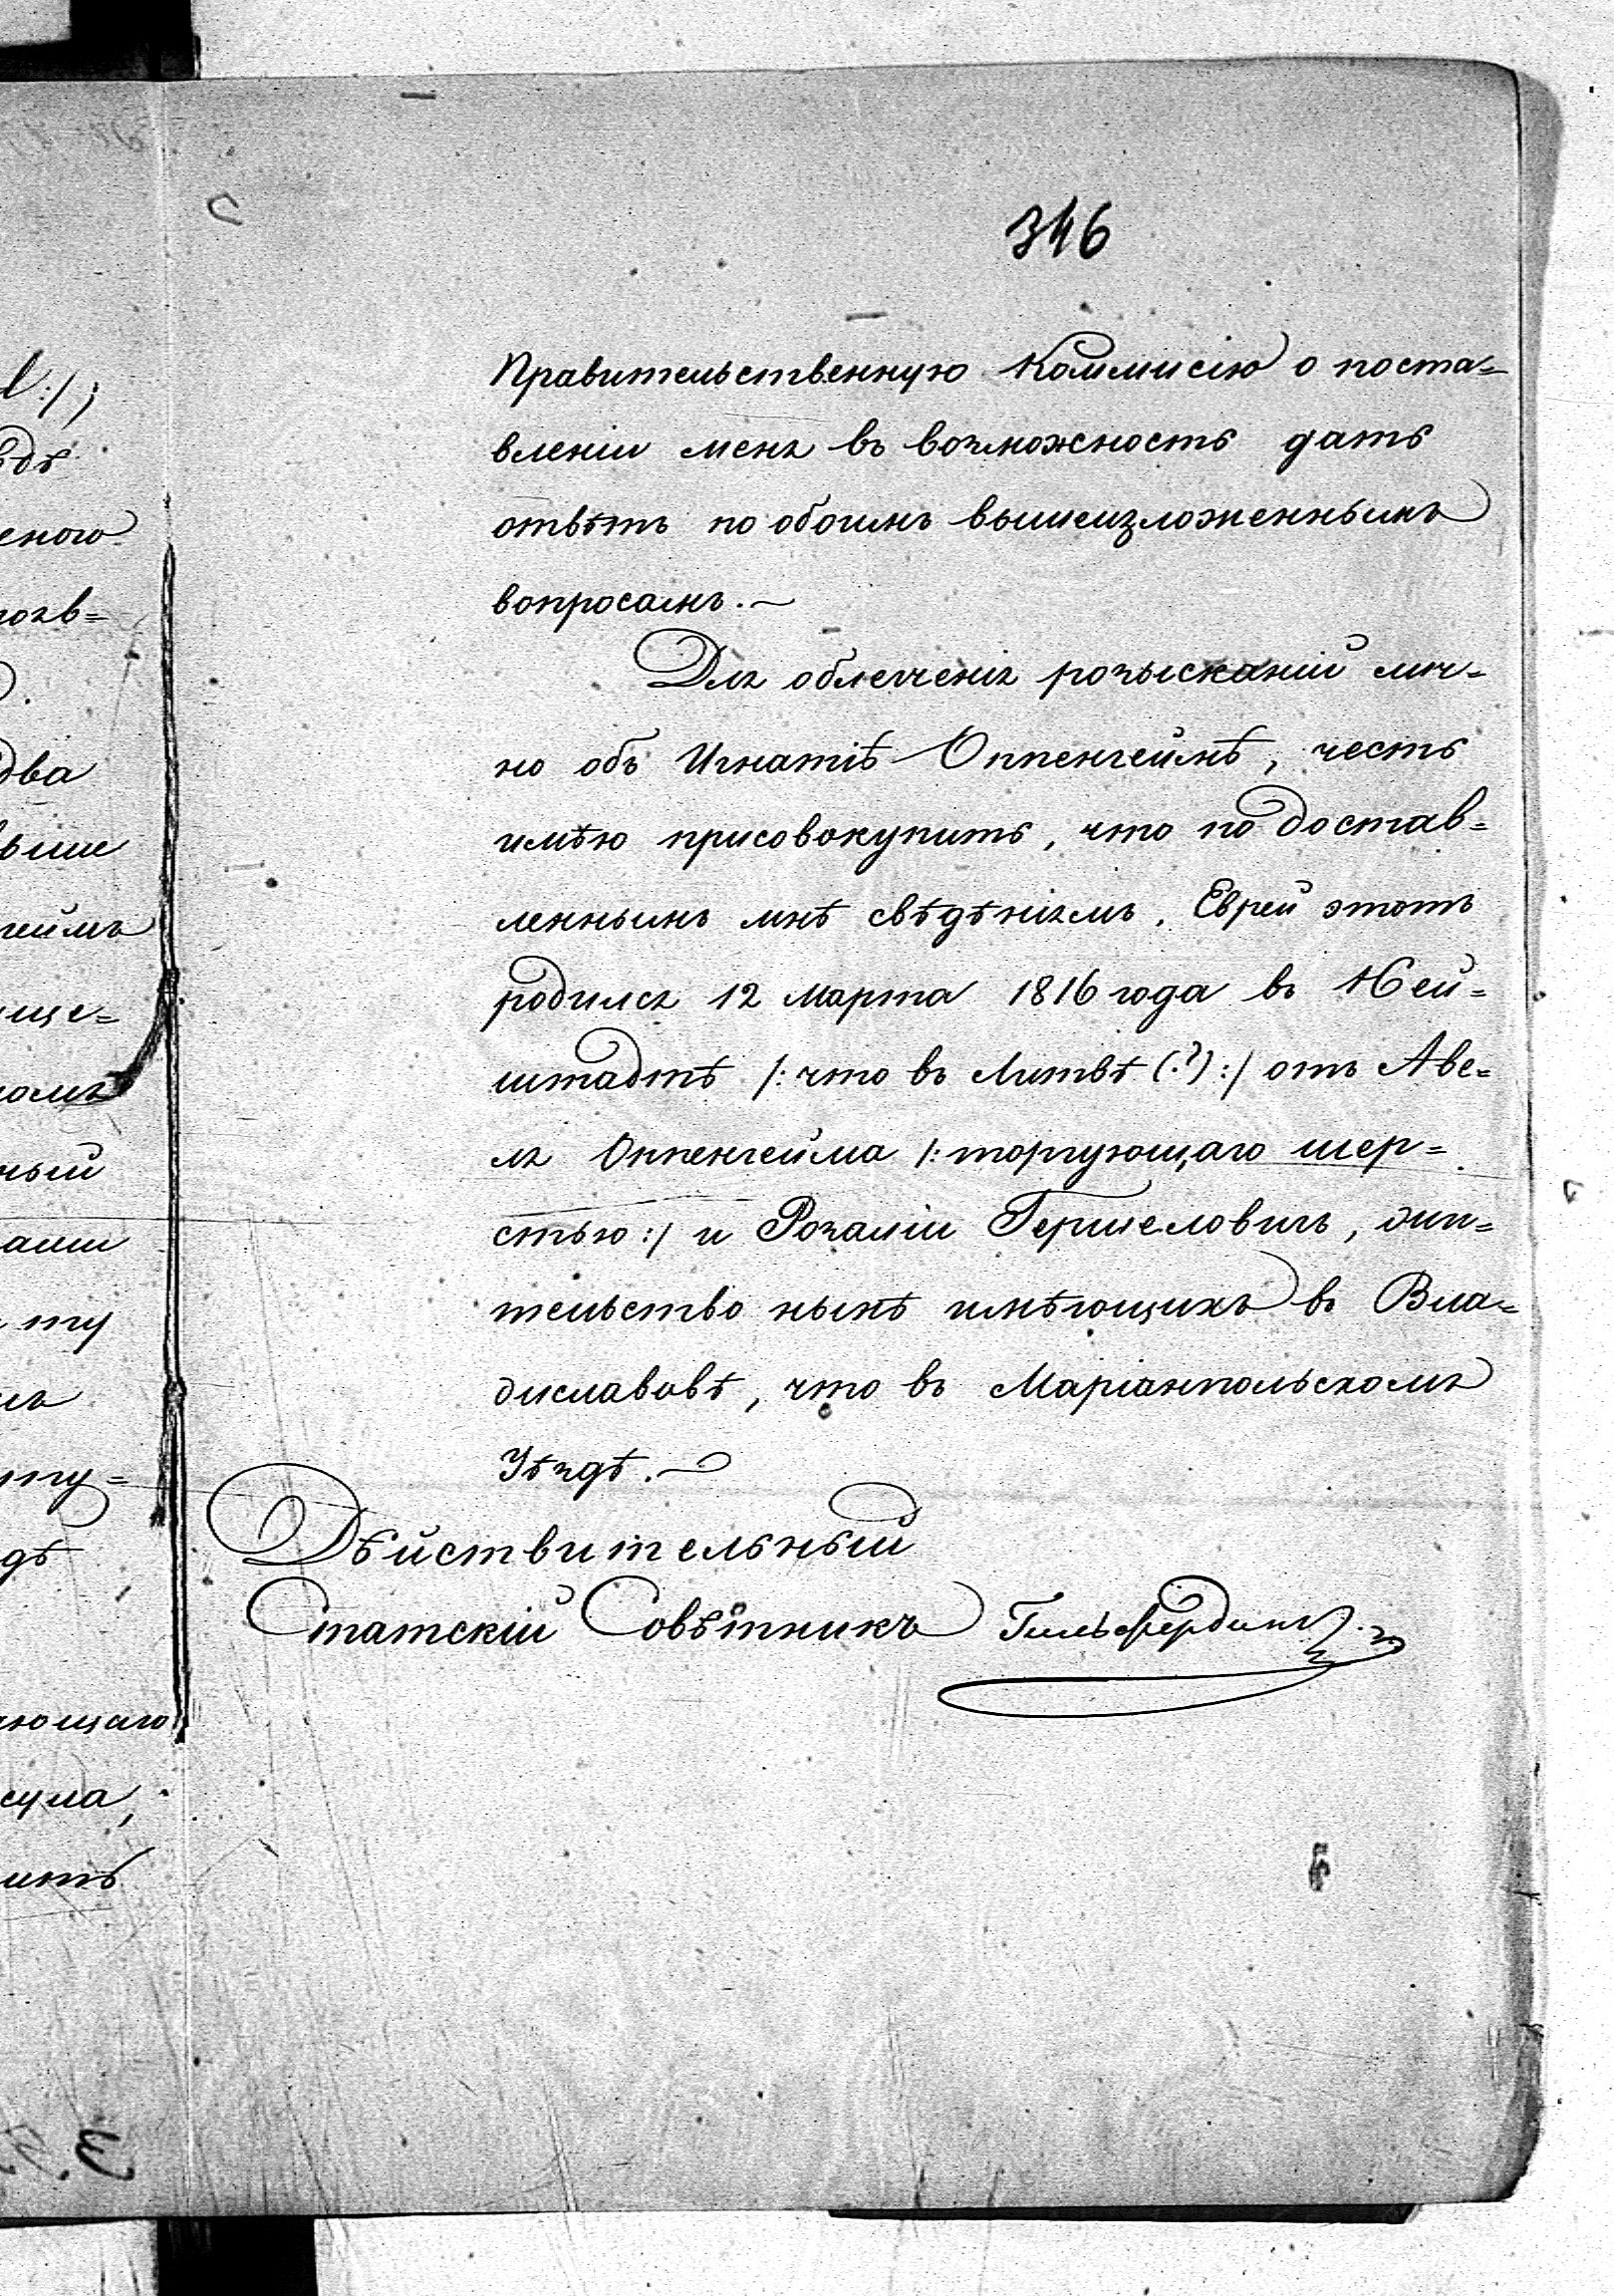 346
Правительственную Коммисію о поста=
вленіи меня въ возможность дать
отвѣтъ по обоимъ вышеизложеннымъ
вопросамъ.—
Для облегченія розысканій лич=
но объ Игнатіѣ Оппенгеймѣ, честь
имѣю присовокупить, что по достав=
леннымъ мнѣ свѣдѣніямъ, Еврей этотъ
родился 12 Марта 1816 года въ Ней=
штадтѣ /: что въ Литвѣ (?) :/ отъ Аве=
ля Оппенгейма /: торгующаго шер=
стью :/ и Розаліи Гершеловичъ, жи=
тельство нынѣ имѣющихъ въ Вла=
диславовѣ, что въ Маріампольскомъ
Уѣздѣ.—
Дѣйствительный
Статскій Совѣтникъ Гильфердингъ.
еного
два
выше
геймъ
още=
ный
ту
ующаго
сула,